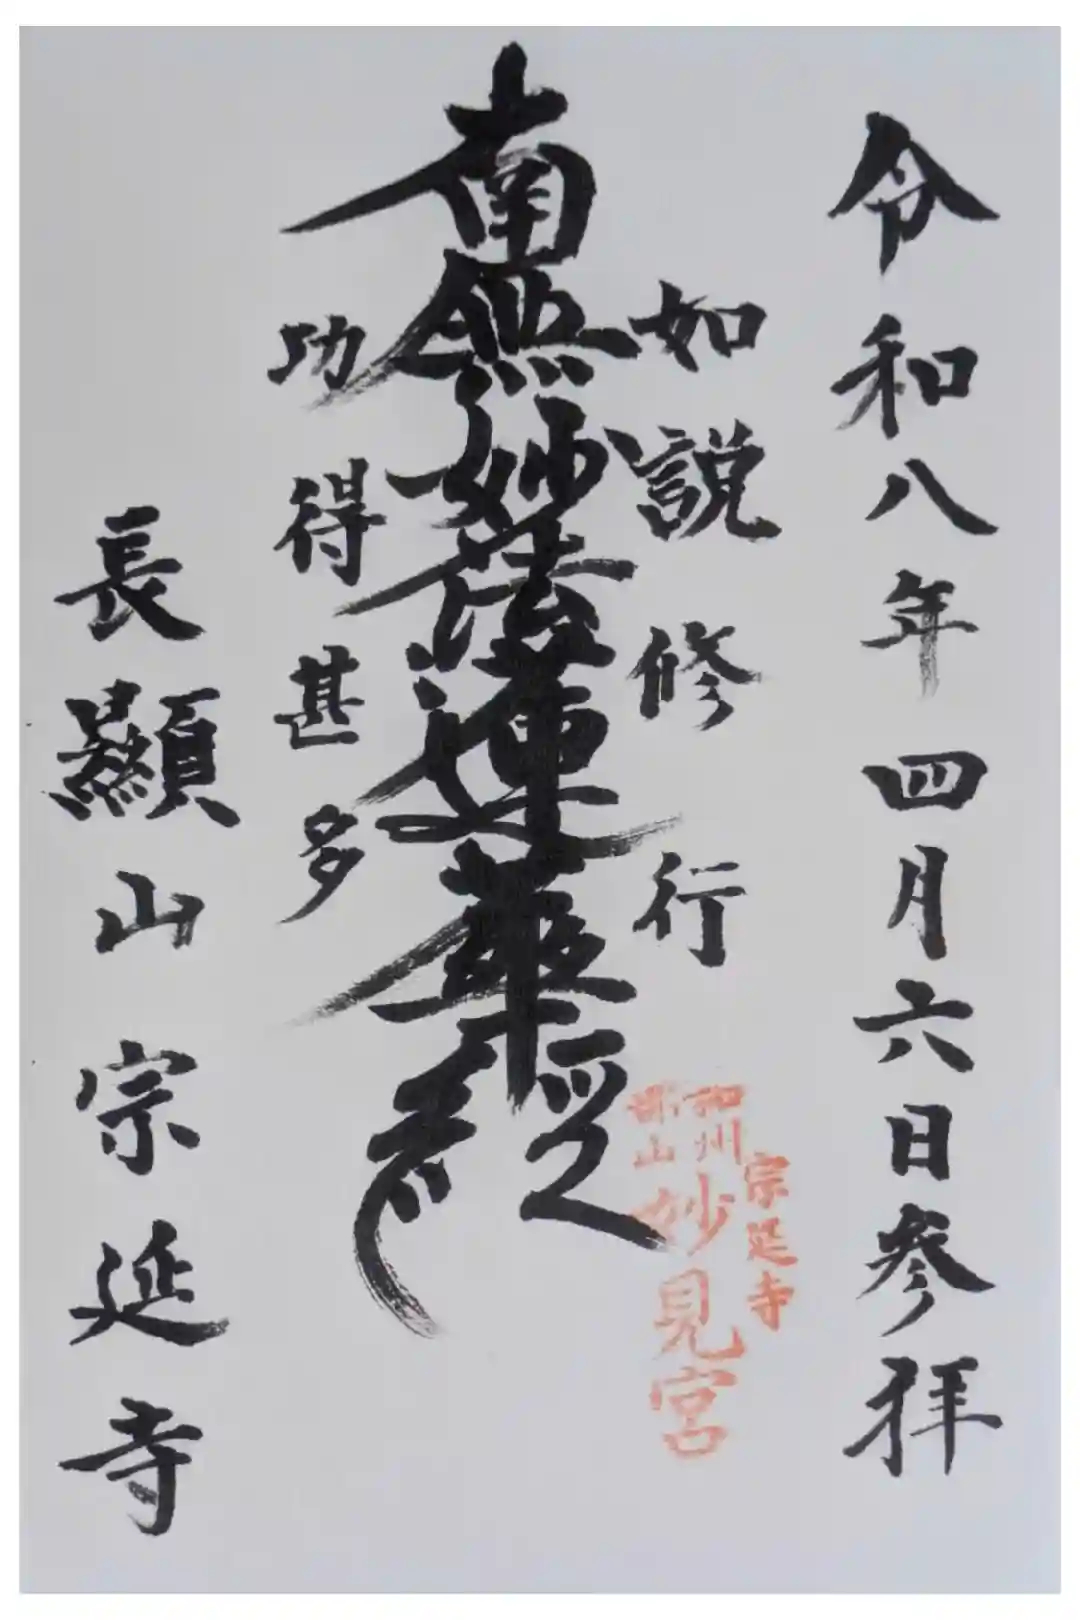 令和八年四月六日参拝
如説修行
南無妙法蓮華経
功得甚多
長顯山宗延寺
宗延寺
和州
郡山
妙見宮